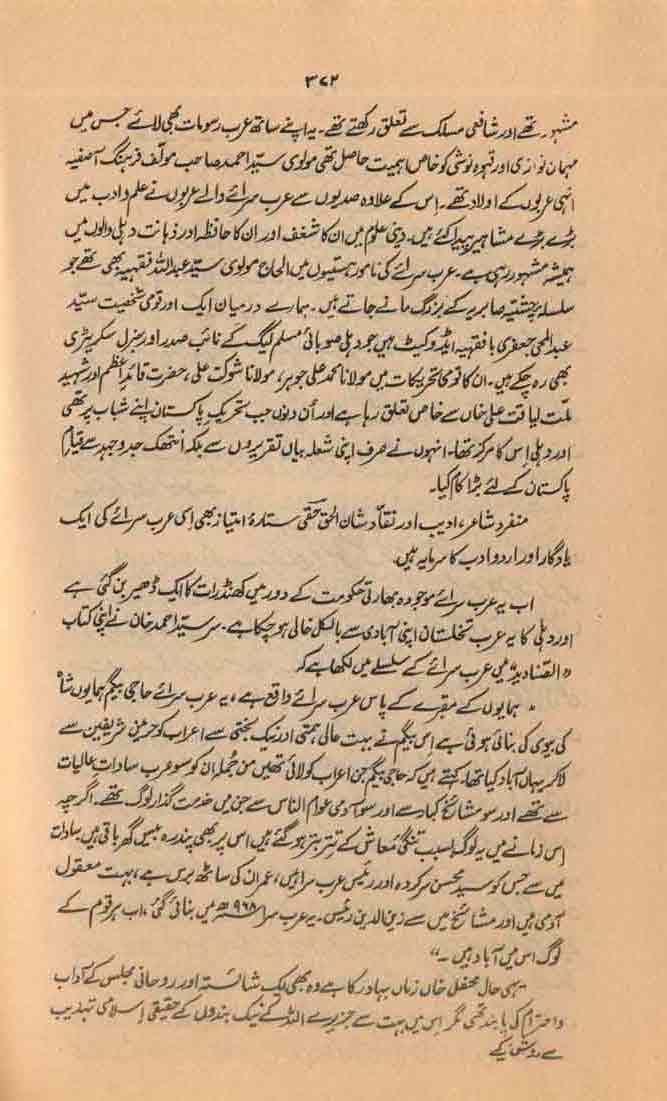 ۳۷۲
مشہور تھے اور شافعی مسلک سے تعلق رکھتے تھے۔ یہ اپنے ساتھ عرب رسومات بھی لائے جس میں
مہمان نوازی اور قہوہ نوشی کو خاص اہمیت حاصل تھی مولوی سیّد احمد صاحب مولّف فرہنگ آصفیہ
انہی عربوں کے اولاد تھے۔ اِس کے علاوہ صدیوں سے عرب سرائے والے عربوں نے علم و ادب میں
بڑے بڑے مشاہیر پیدا کئے ہیں۔ دینی علوم میں ان کا شغف اور ان کا حافظہ اور ذہانت دہلی والوں میں
ہمیشہ مشہور رہی ہے۔ عرب سرائے کی نامور ہستیوں میں الحاج مولوی سیّد عبداللہ فقیہہ بھی تھے جو
سلسلہ چشتیہ صابریہ کے بزرگ مانے جاتے ہیں۔ ہمارے درمیان ایک اور قومی شخصیت سیّد
عبدالحئی جعفری بافقیہہ ایڈوکیٹ ہیں جو دہلی صوبائی مسلم لیگ کے نائب صدر اور جنرل سکریٹری
بھی رہ چکے ہیں۔ ان کا قومی تحریکات میں مولانا محمد علی جوہر، مولانا شوکت علی، حضرت قائدِ اعظم اور شہید
ملّت لیاقت علی خاں سے خاص تعلق رہا ہے اور اُن دِنوں جب تحریکِ پاکستان اپنے شباب پر تھی
اور دہلی اِس کا مرکز تھا۔ انہوں نے صرف اپنی شعلہ بیاں تقریروں سے بلکہ انتھک جدوجہد سے قیامِ
پاکستان کے لئے بڑا کام کیا۔
منفرد شاعر، ادیب اور نقاد شان الحق حقّی ستارۂ امتیاز بھی اِسی عرب سرائے کی ایک
یادگار اور اردو ادب کا سرمایہ ہیں۔
اب یہ عرب سرائے موجودہ بھارتی حکومت کے دور میں کھنڈرات کا ایک ڈھیر بن گئی ہے
اور دہلی کا یہ عرب نخلستان اپنی آبادی سے بالکل خالی ہو چکا ہے۔ سر سیّد احمد خان نے اپنی کتاب
"الصنادید" میں عرب سرائے کے سلسلے میں لکھا ہے کہ
"ہمایوں کے مقبرے کے پاس عرب سرائے واقع ہے، یہ عرب سرائے حاجی بیگم ہمایوں شاہ
کی بیوی کی بنائی ہوئی ہے اِس بیگم نے بہت عالی ہمتی اور نیک بختی سے اعراب کو حرمین شریفین سے
لا کر یہاں آباد کیا تھا۔ کہتے ہیں کہ حاجی بیگم جن اعراب کو لائی تھیں من جُملہ اُن کو سو عرب سادات عالیات
سے تھے اور سو مشائخ کبار سے اور سو آدمی عوام الناس سے جن میں خدمت گذار لوگ تھے۔ اگرچہ
اِس زمانے میں یہ لوگ بسبب تنگیٔ معاش کے تتر بتر ہو گئے ہیں اس پر بھی پندرہ بیس گھر باقی ہیں سادات
میں سے جس کو سید محسن سرکردہ اور رئیس عرب سرا ہیں، عمر ان کی ساٹھ برس ہے، بہت معقول
آدمی ہیں اور مشائخ میں سے زین الدین رئیس۔ یہ عرب سرا ۹۶۸ھ میں بنائی گئی، اب ہر قوم کے
لوگ اس میں آباد ہیں۔"
یہی حال محفل خاں زماں بہادر کا ہے وہ بھی ایک شائستہ اور روحانی مجلس کے آداب
و احترام کی پابند تھی مگر اِس میں بہت سے جزیرے اللہ کے نیک بندوں کے حقیقی اِسلامی تہذیب
سے روشن کئے